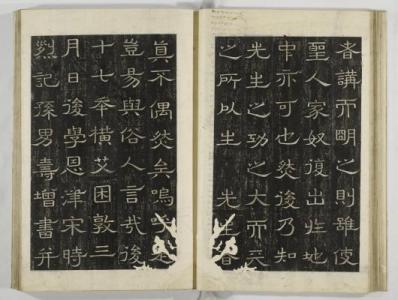 者講而明之則雖使
聖人家奴復出於地
中亦可也然後乃知
先生之功之大而天
之所以生 先生者
真不偶然矣嗚呼是
豈易與俗人言哉後
十七年橫艾困敦三
月日後學恩津宋時
烈記孫男壽增書并